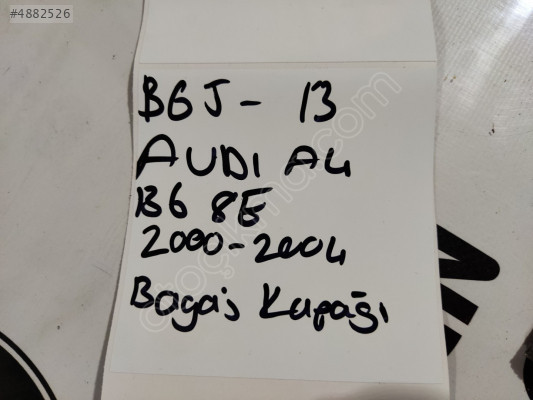 #4882526
BGJ - 13
AUDI A4
B6 8E
2000-2004
Bagaj Kapağı